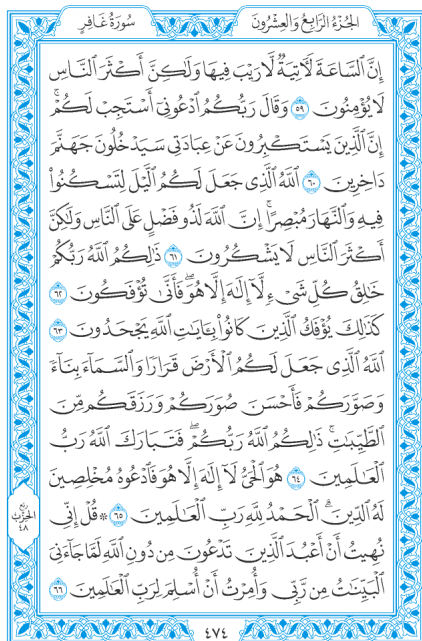 سُورَةُ غَافِرٍ
الجُزْءُ الرَّابِعُ وَالعِشْرُونَ
إِنَّ ٱلسَّاعَةَ لَأٓتِيَةٌ لَّا رَيْبَ فِيهَا وَلَٰكِنَّ أَكْثَرَ ٱلنَّاسِ
لَا يُؤْمِنُونَ ٥٩ وَقَالَ رَبُّكُمُ ٱدْعُونِىٓ أَسْتَجِبْ لَكُمْ ۚ
إِنَّ ٱلَّذِينَ يَسْتَكْبِرُونَ عَنْ عِبَادَتِى سَيَدْخُلُونَ جَهَنَّمَ
دَاخِرِينَ ٦٠ ٱللَّهُ ٱلَّذِى جَعَلَ لَكُمُ ٱلَّيْلَ لِتَسْكُنُوا۟
فِيهِ وَٱلنَّهَارَ مُبْصِرًا ۚ إِنَّ ٱللَّهَ لَذُو فَضْلٍ عَلَى ٱلنَّاسِ وَلَٰكِنَّ
أَكْثَرَ ٱلنَّاسِ لَا يَشْكُرُونَ ٦١ ذَٰلِكُمُ ٱللَّهُ رَبُّكُمْ
خَٰلِقُ كُلِّ شَىْءٍ لَّآ إِلَٰهَ إِلَّا هُوَ ۖ فَأَنَّىٰ تُؤْفَكُونَ ٦٢
كَذَٰلِكَ يُؤْفَكُ ٱلَّذِينَ كَانُوا۟ بِـَٔايَٰتِ ٱللَّهِ يَجْحَدُونَ ٦٣
ٱللَّهُ ٱلَّذِى جَعَلَ لَكُمُ ٱلْأَرْضَ قَرَارًا وَٱلسَّمَآءَ بِنَآءً
وَصَوَّرَكُمْ فَأَحْسَنَ صُوَرَكُمْ وَرَزَقَكُم مِّنَ
ٱلطَّيِّبَٰتِ ۚ ذَٰلِكُمُ ٱللَّهُ رَبُّكُمْ ۖ فَتَبَارَكَ ٱللَّهُ رَبُّ
ٱلْعَٰلَمِينَ ٦٤ هُوَ ٱلْحَىُّ لَآ إِلَٰهَ إِلَّا هُوَ فَٱدْعُوهُ مُخْلِصِينَ
لَهُ ٱلدِّينَ ۗ ٱلْحَمْدُ لِلَّهِ رَبِّ ٱلْعَٰلَمِينَ ٦٥ ۞ قُلْ إِنِّى
نُهِيتُ أَنْ أَعْبُدَ ٱلَّذِينَ تَدْعُونَ مِن دُونِ ٱللَّهِ لَمَّا جَآءَنِىَ
ٱلْبَيِّنَٰتُ مِن رَّبِّى وَأُمِرْتُ أَنْ أُسْلِمَ لِرَبِّ ٱلْعَٰلَمِينَ ٦٦
ربع
الحزب
٤٨
٤٧٤